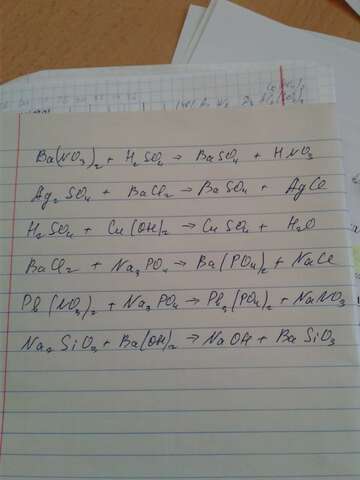 Ba(NO₃)₂ + H₂SO₄ → BaSO₄ + HNO₃
Ag₂SO₄ + BaCl₂ → BaSO₄ + AgCl
H₂SO₄ + Cu(OH)₂ → CuSO₄ + H₂O
BaCl₂ + Na₃PO₄ → Ba(PO₄)₂ + NaCl
Pb(NO₃)₂ + Na₃PO₄ → Pb₃(PO₄)₂ + NaNO₃
Na₂SiO₃ + Ba(OH)₂ → NaOH + BaSiO₃